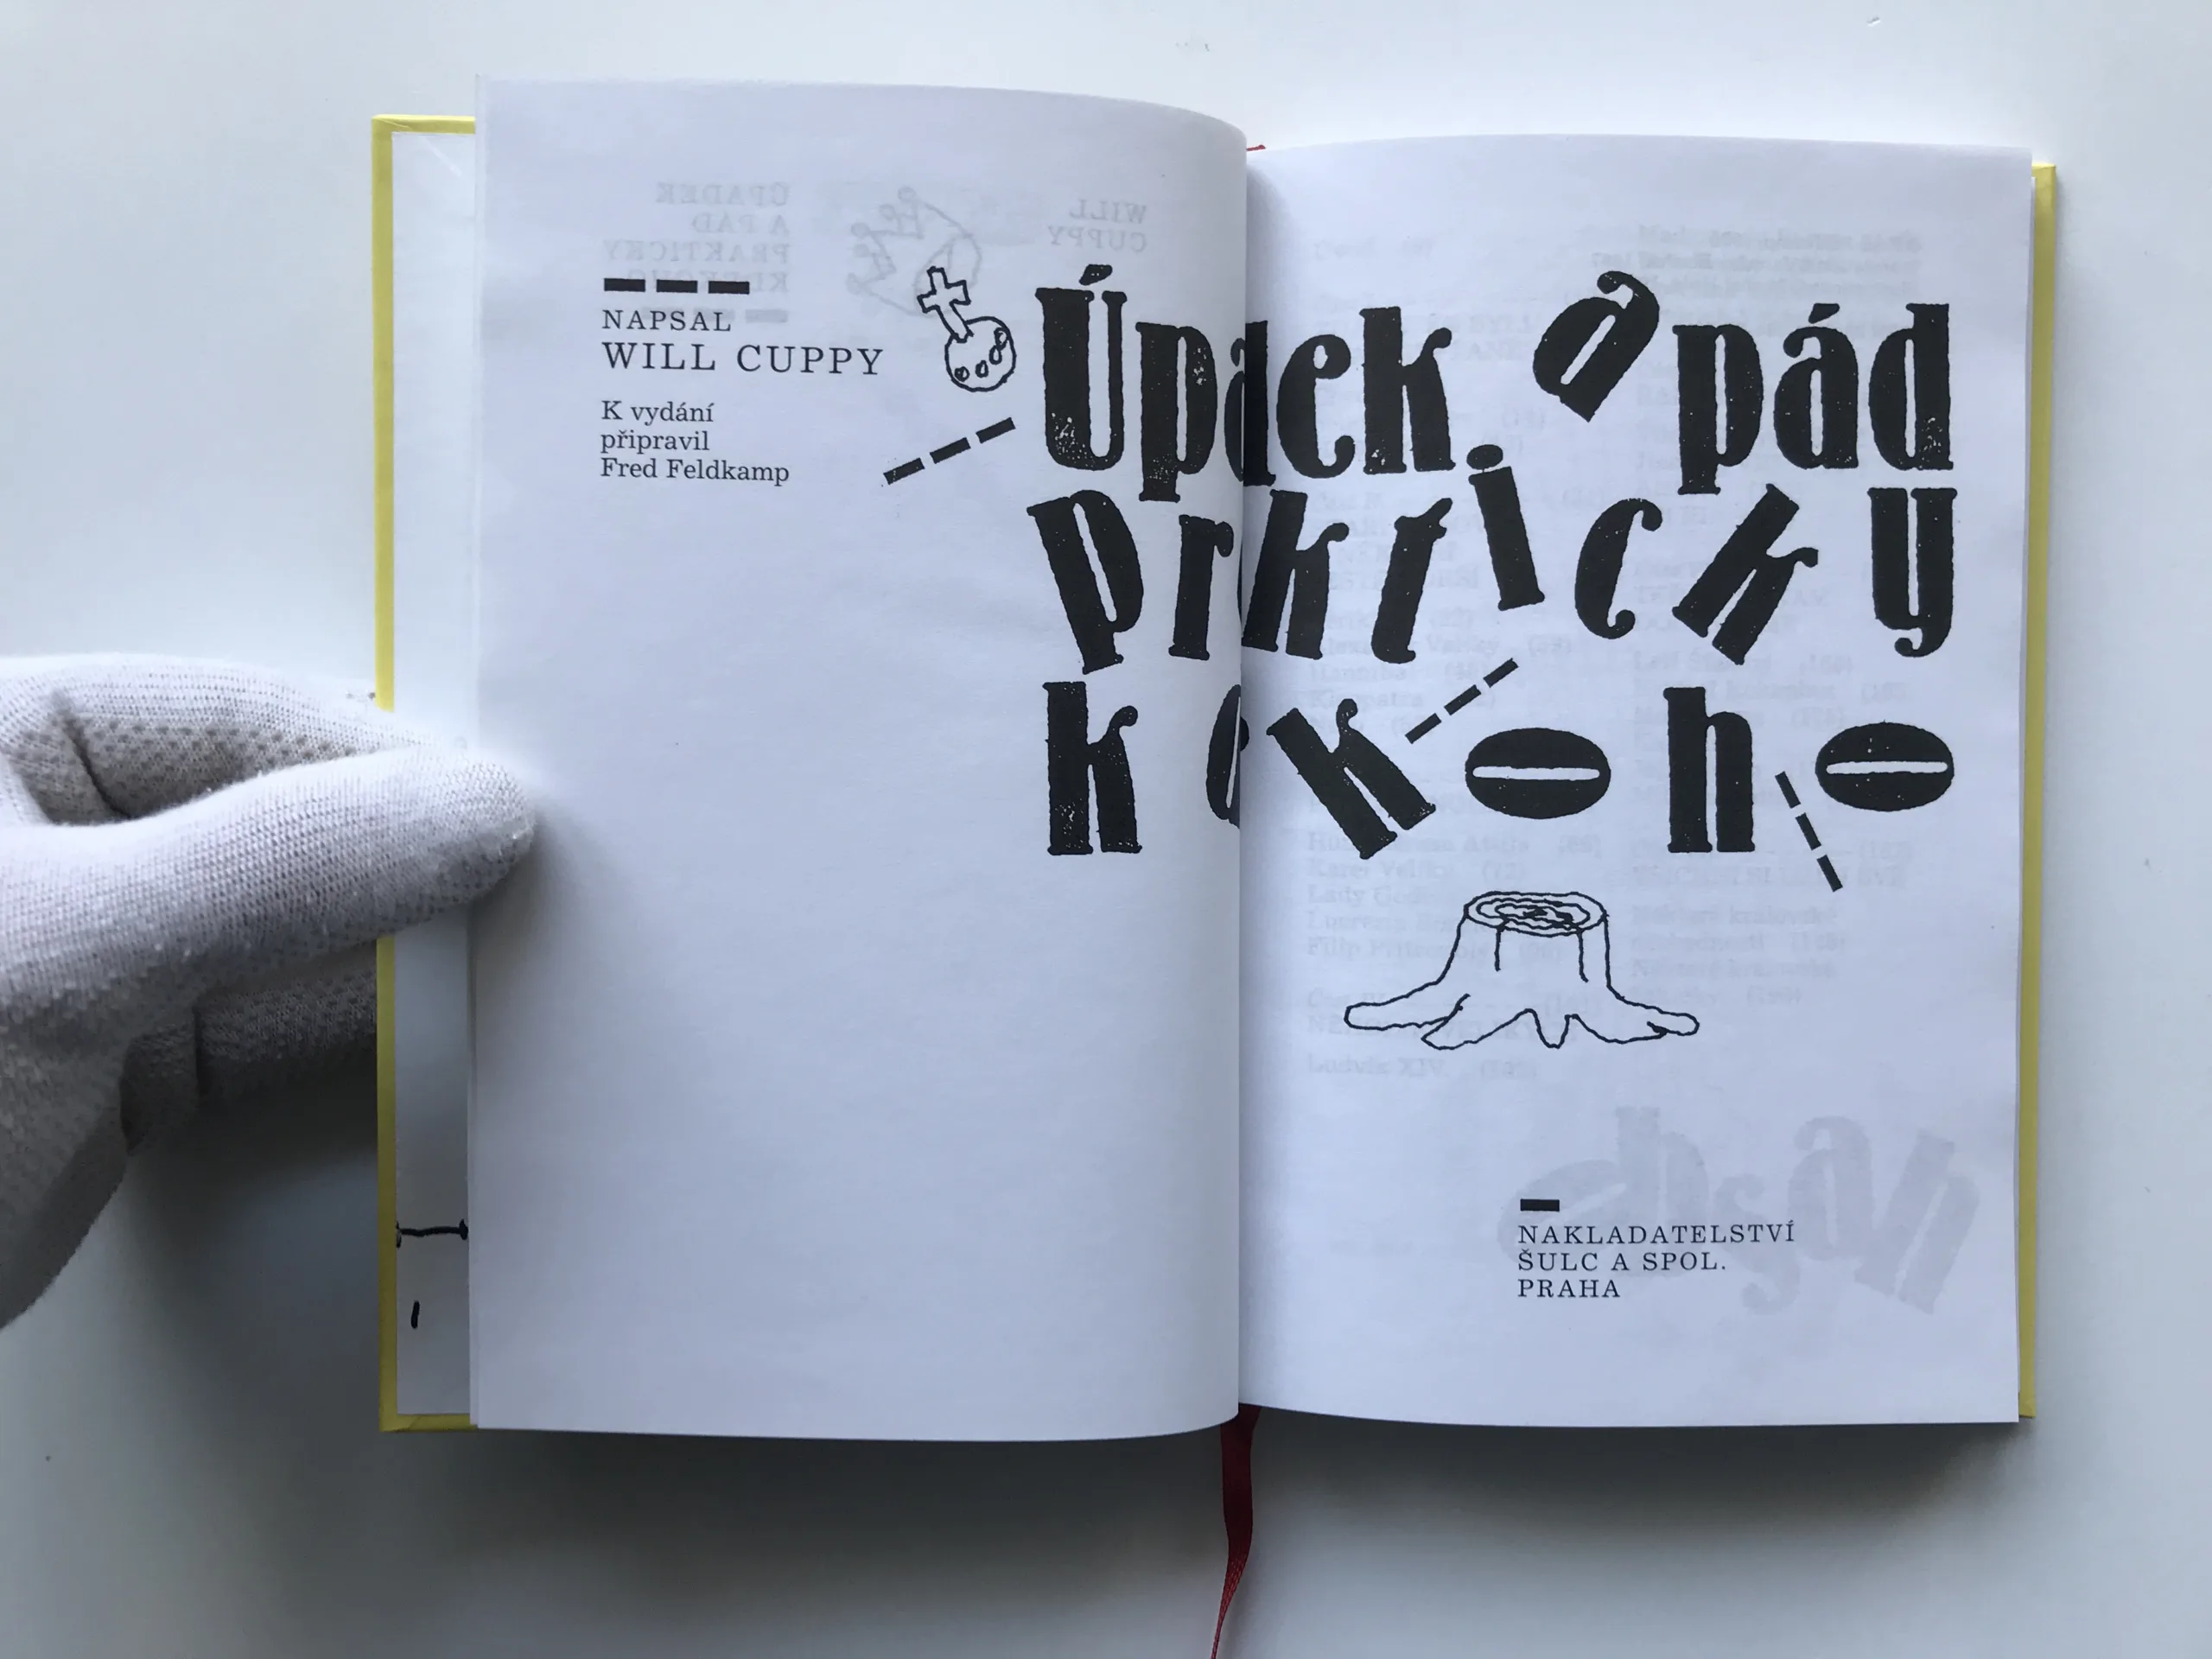 NAPSAL
WILL CUPPY
K vydání
připravil
Fred Feldkamp
Úpadek a pád
prakticky
kdekoho
NAKLADATELSTVÍ
ŠULC A SPOL.
PRAHA